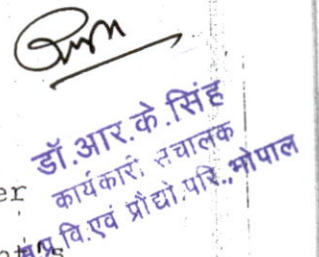 डॉ.आर.के.सिंह
कार्यकारी संचालक
म.प्र.वि.एवं प्रौद्यो.परि.,भोपाल
er